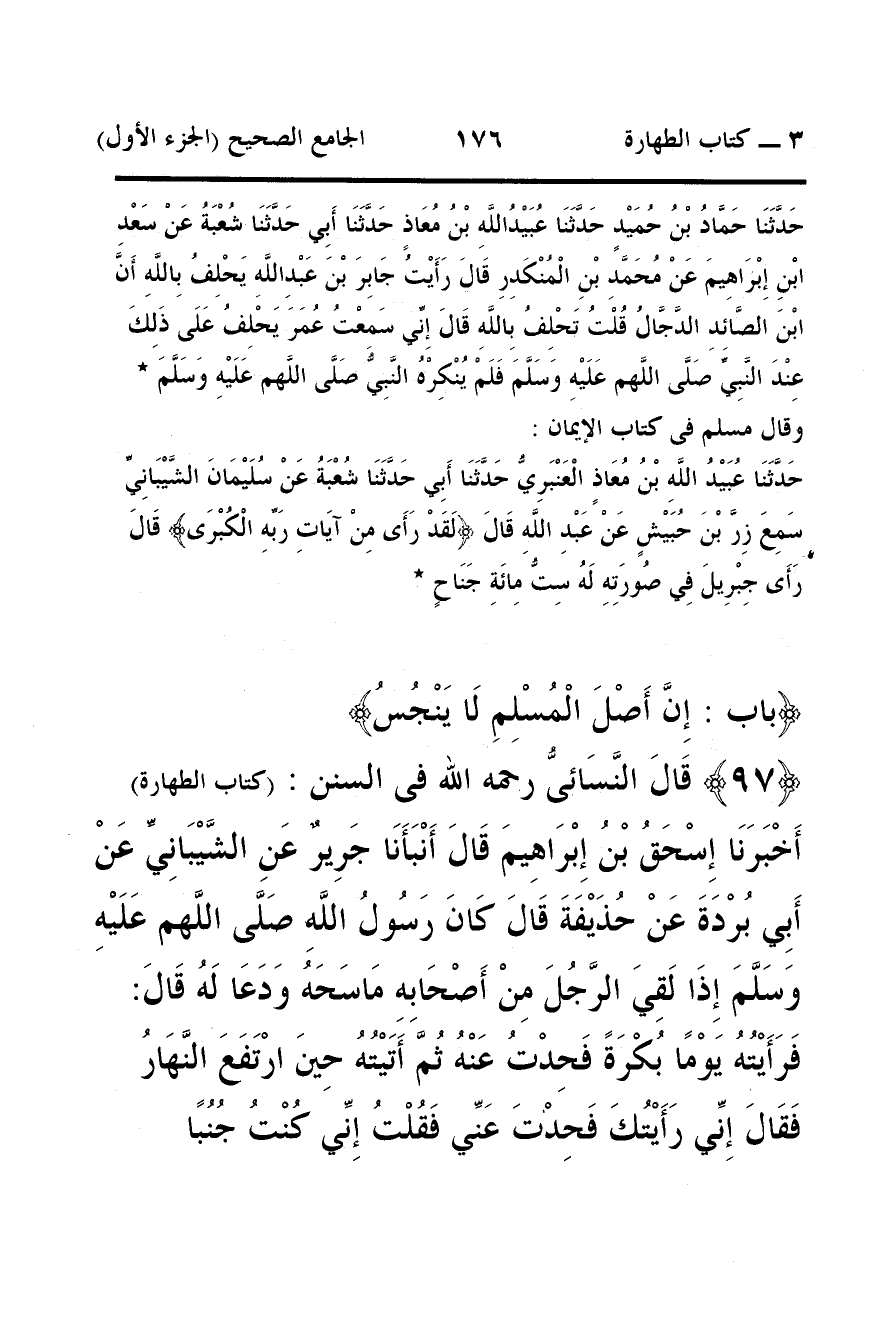 ٣ ــ كتاب الطهارة ١٧٦ الجامع الصحيح (الجزء الأول)
حَدَّثَنَا حَمَّادُ بْنُ حُمَيْدٍ حَدَّثَنَا عُبَيْدُاللَّهِ بْنُ مُعَاذٍ حَدَّثَنَا أَبِي حَدَّثَنَا شُعْبَةُ عَنْ سَعْدِ
ابْنِ إِبْرَاهِيمَ عَنْ مُحَمَّدِ بْنِ الْمُنْكَدِرِ قَالَ رَأَيْتُ جَابِرَ بْنَ عَبْدِاللَّهِ يَحْلِفُ بِاللَّهِ أَنَّ
ابْنَ الصَّائِدِ الدَّجَّالُ قُلْتُ تَحْلِفُ بِاللَّهِ قَالَ إِنِّي سَمِعْتُ عُمَرَ يَحْلِفُ عَلَى ذَلِكَ
عِنْدَ النَّبِيِّ صَلَّى اللهم عَلَيْهِ وَسَلَّمَ فَلَمْ يُنْكِرْهُ النَّبِيُّ صَلَّى اللهم عَلَيْهِ وَسَلَّمَ *
وقال مسلم فى كتاب الإيمان :
حَدَّثَنَا عُبَيْدُ اللَّهِ بْنُ مُعَاذٍ الْعَنْبَرِيُّ حَدَّثَنَا أَبِي حَدَّثَنَا شُعْبَةُ عَنْ سُلَيْمَانَ الشَّيْبَانِيِّ
سَمِعَ زِرَّ بْنَ حُبَيْشٍ عَنْ عَبْدِ اللَّهِ قَالَ ﴿لَقَدْ رَأَى مِنْ آيَاتِ رَبِّهِ الْكُبْرَى﴾ قَالَ
رَأَى جِبْرِيلَ فِي صُورَتِهِ لَهُ سِتُّ مِائَةِ جَنَاحٍ *
﴿باب : إِنَّ أَصْلَ الْمُسْلِمِ لَا يَنْجُسُ﴾
﴿٩٧﴾ قَالَ النَّسَائىُّ رحمه الله فى السنن : (كتاب الطهارة)
أَخْبَرَنَا إِسْحَقُ بْنُ إِبْرَاهِيمَ قَالَ أَنْبَأَنَا جَرِيرٌ عَنِ الشَّيْبَانِيِّ عَنْ
أَبِي بُرْدَةَ عَنْ حُذَيْفَةَ قَالَ كَانَ رَسُولُ اللَّهِ صَلَّى اللهم عَلَيْهِ
وَسَلَّمَ إِذَا لَقِيَ الرَّجُلَ مِنْ أَصْحَابِهِ مَاسَحَهُ وَدَعَا لَهُ قَالَ:
فَرَأَيْتُهُ يَوْمًا بُكْرَةً فَحِدْتُ عَنْهُ ثُمَّ أَتَيْتُهُ حِينَ ارْتَفَعَ النَّهَارُ
فَقَالَ إِنِّي رَأَيْتُكَ فَحِدْتَ عَنِّي فَقُلْتُ إِنِّي كُنْتُ جُنُبًا